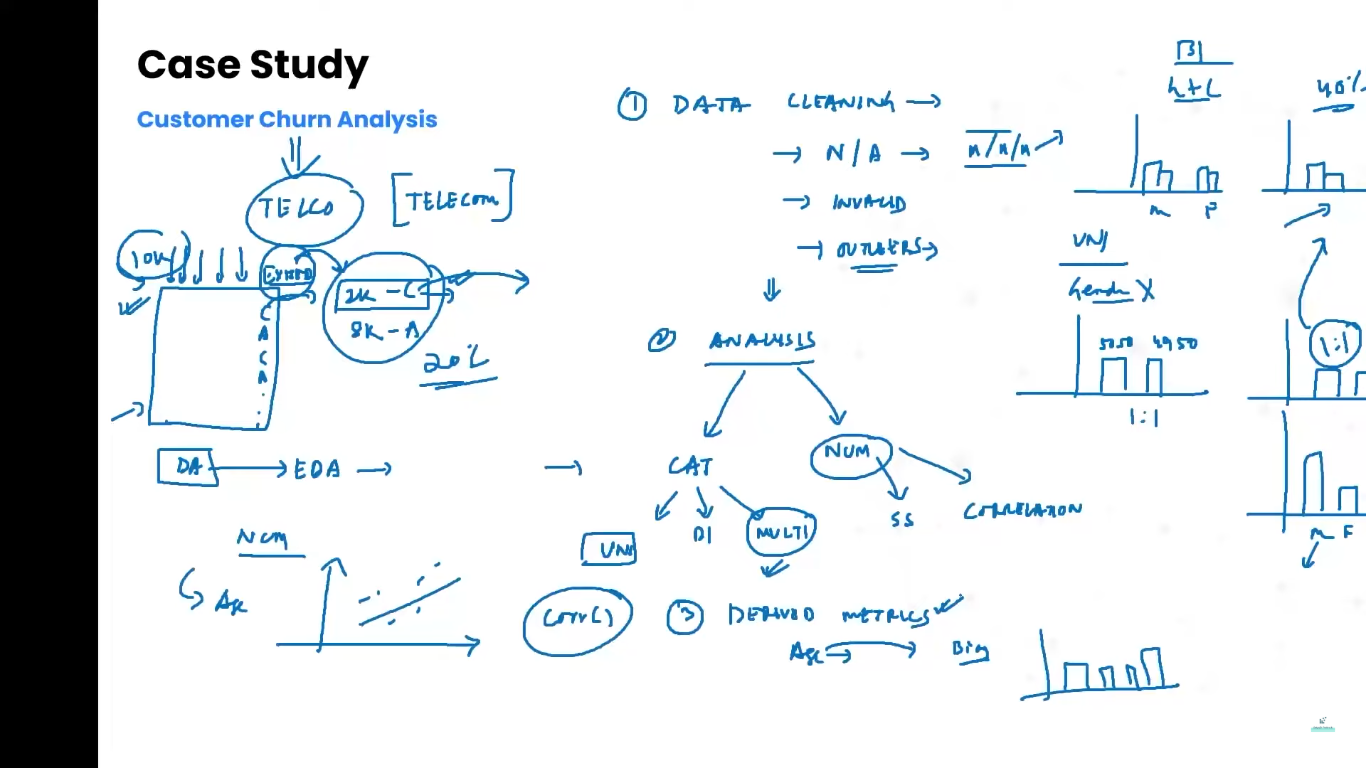 Case Study
Customer Churn Analysis
TELCO
[TELECOM]
10K
2K - C
8K - A
20%
C
A
C
A
DA → EDA →
Num
Age
Corr()
① DATA CLEANING →
→ N/A → M/M/M
→ INVALID
→ OUTLIERS →
② ANALYSIS
→ CAT
NUM
UNI
DI
MULTI
SS
CORRELATION
③ DERIVED METRICS
Age → Bin
BI
G+C
M F
40%
UNI
Gender X
5050 4950
1:1
1:1
M F